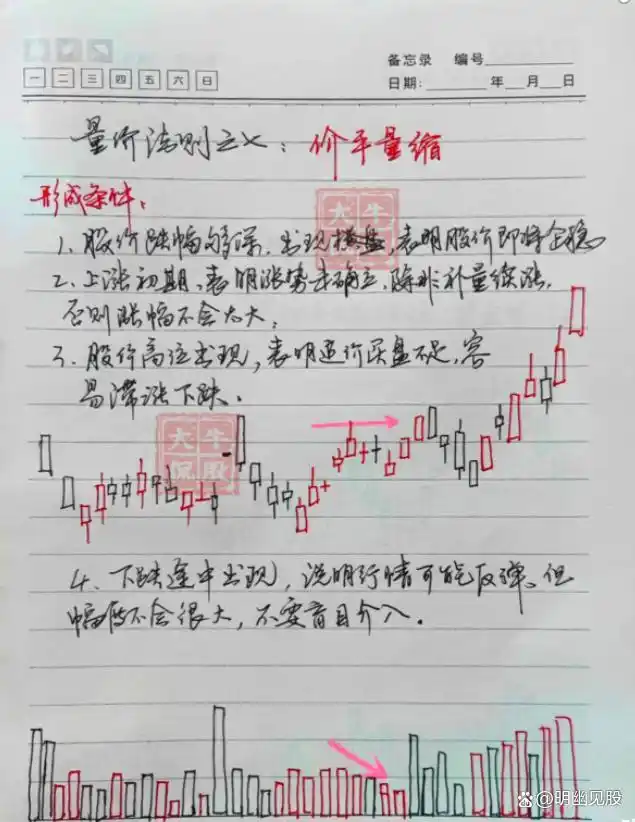 备忘录 编号
一 二 三 四 五 六 日
日期: 年 月 日
量价法则之七：价平量缩
形成条件：
大牛
1、股价跌幅够深，出现横盘，表明股价即将企稳
2、上涨初期，表明涨势未确立，除非补量续涨，
否则涨幅不会太大；
3、股价高位出现，表明追价买盘不足，容
易滞涨下跌．
大牛
侃股
4、下跌途中出现，说明行情可能反弹。但
幅度不会很大，不要盲目介入．
明幽见股